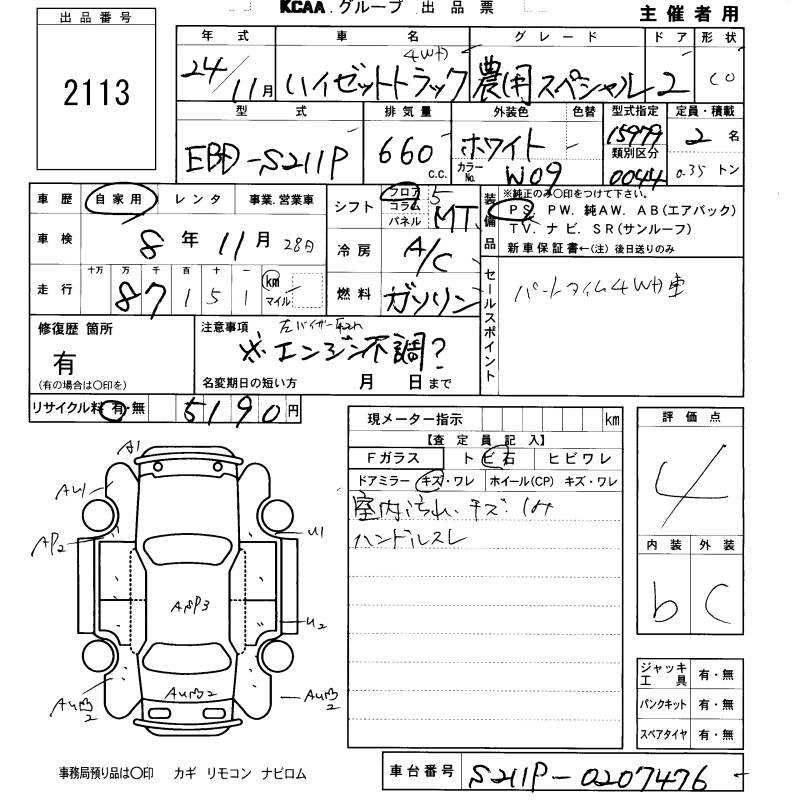 KCAA グループ 出品票
主催者用
出品番号
2113
年式 車名 グレード ドア 形状
24/11月 ハイゼットトラック 4WD 農用スペシャル 2
型式 排気量 外装色 色替 型式指定 定員・積載
EBD-S211P 660 c.c. ホワイト 15979 2名
カラーNo. W09 類別区分 0044 0.35トン
車歴 自家用 レンタ 事業.営業車
シフト フロア コラム パネル 5 MT
装備品
※純正のみ○印をつけて下さい。
PS. PW. 純AW. AB(エアバック)
TV. ナビ. SR(サンルーフ)
新車保証書←(注) 後日送りのみ
車検 8年 11月 28日
冷房 A/C
走行 十万 万 千 百 十 一
87151 km マイル
燃料 ガソリン
セールスポイント
パートタイム4WD車
修復歴 箇所
有
(有の場合は○印を)
注意事項
※エンジン不調?
名変期日の短い方 月 日まで
リサイクル料 有・無 5190円
現メーター指示 km
【査定員記入】
Fガラス トビ石 ヒビワレ
ドアミラー キズ・ワレ ホイール(CP) キズ・ワレ
室内汚れ、キズ、シミ
ハンドルスレ
評価点
4
内装 外装
b C
A1
AU1
AP2
U1
U2
AUB2
AUB2
AUB2
ジャッキ工具 有・無
パンクキット 有・無
スペアタイヤ 有・無
事務局預り品は○印 カギ リモコン ナビロム
車台番号 S211P-0207476